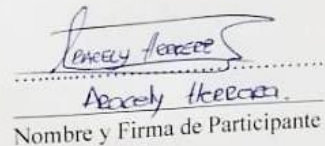 Aracely Herrera
Aracely Herrera.
Nombre y Firma de Participante